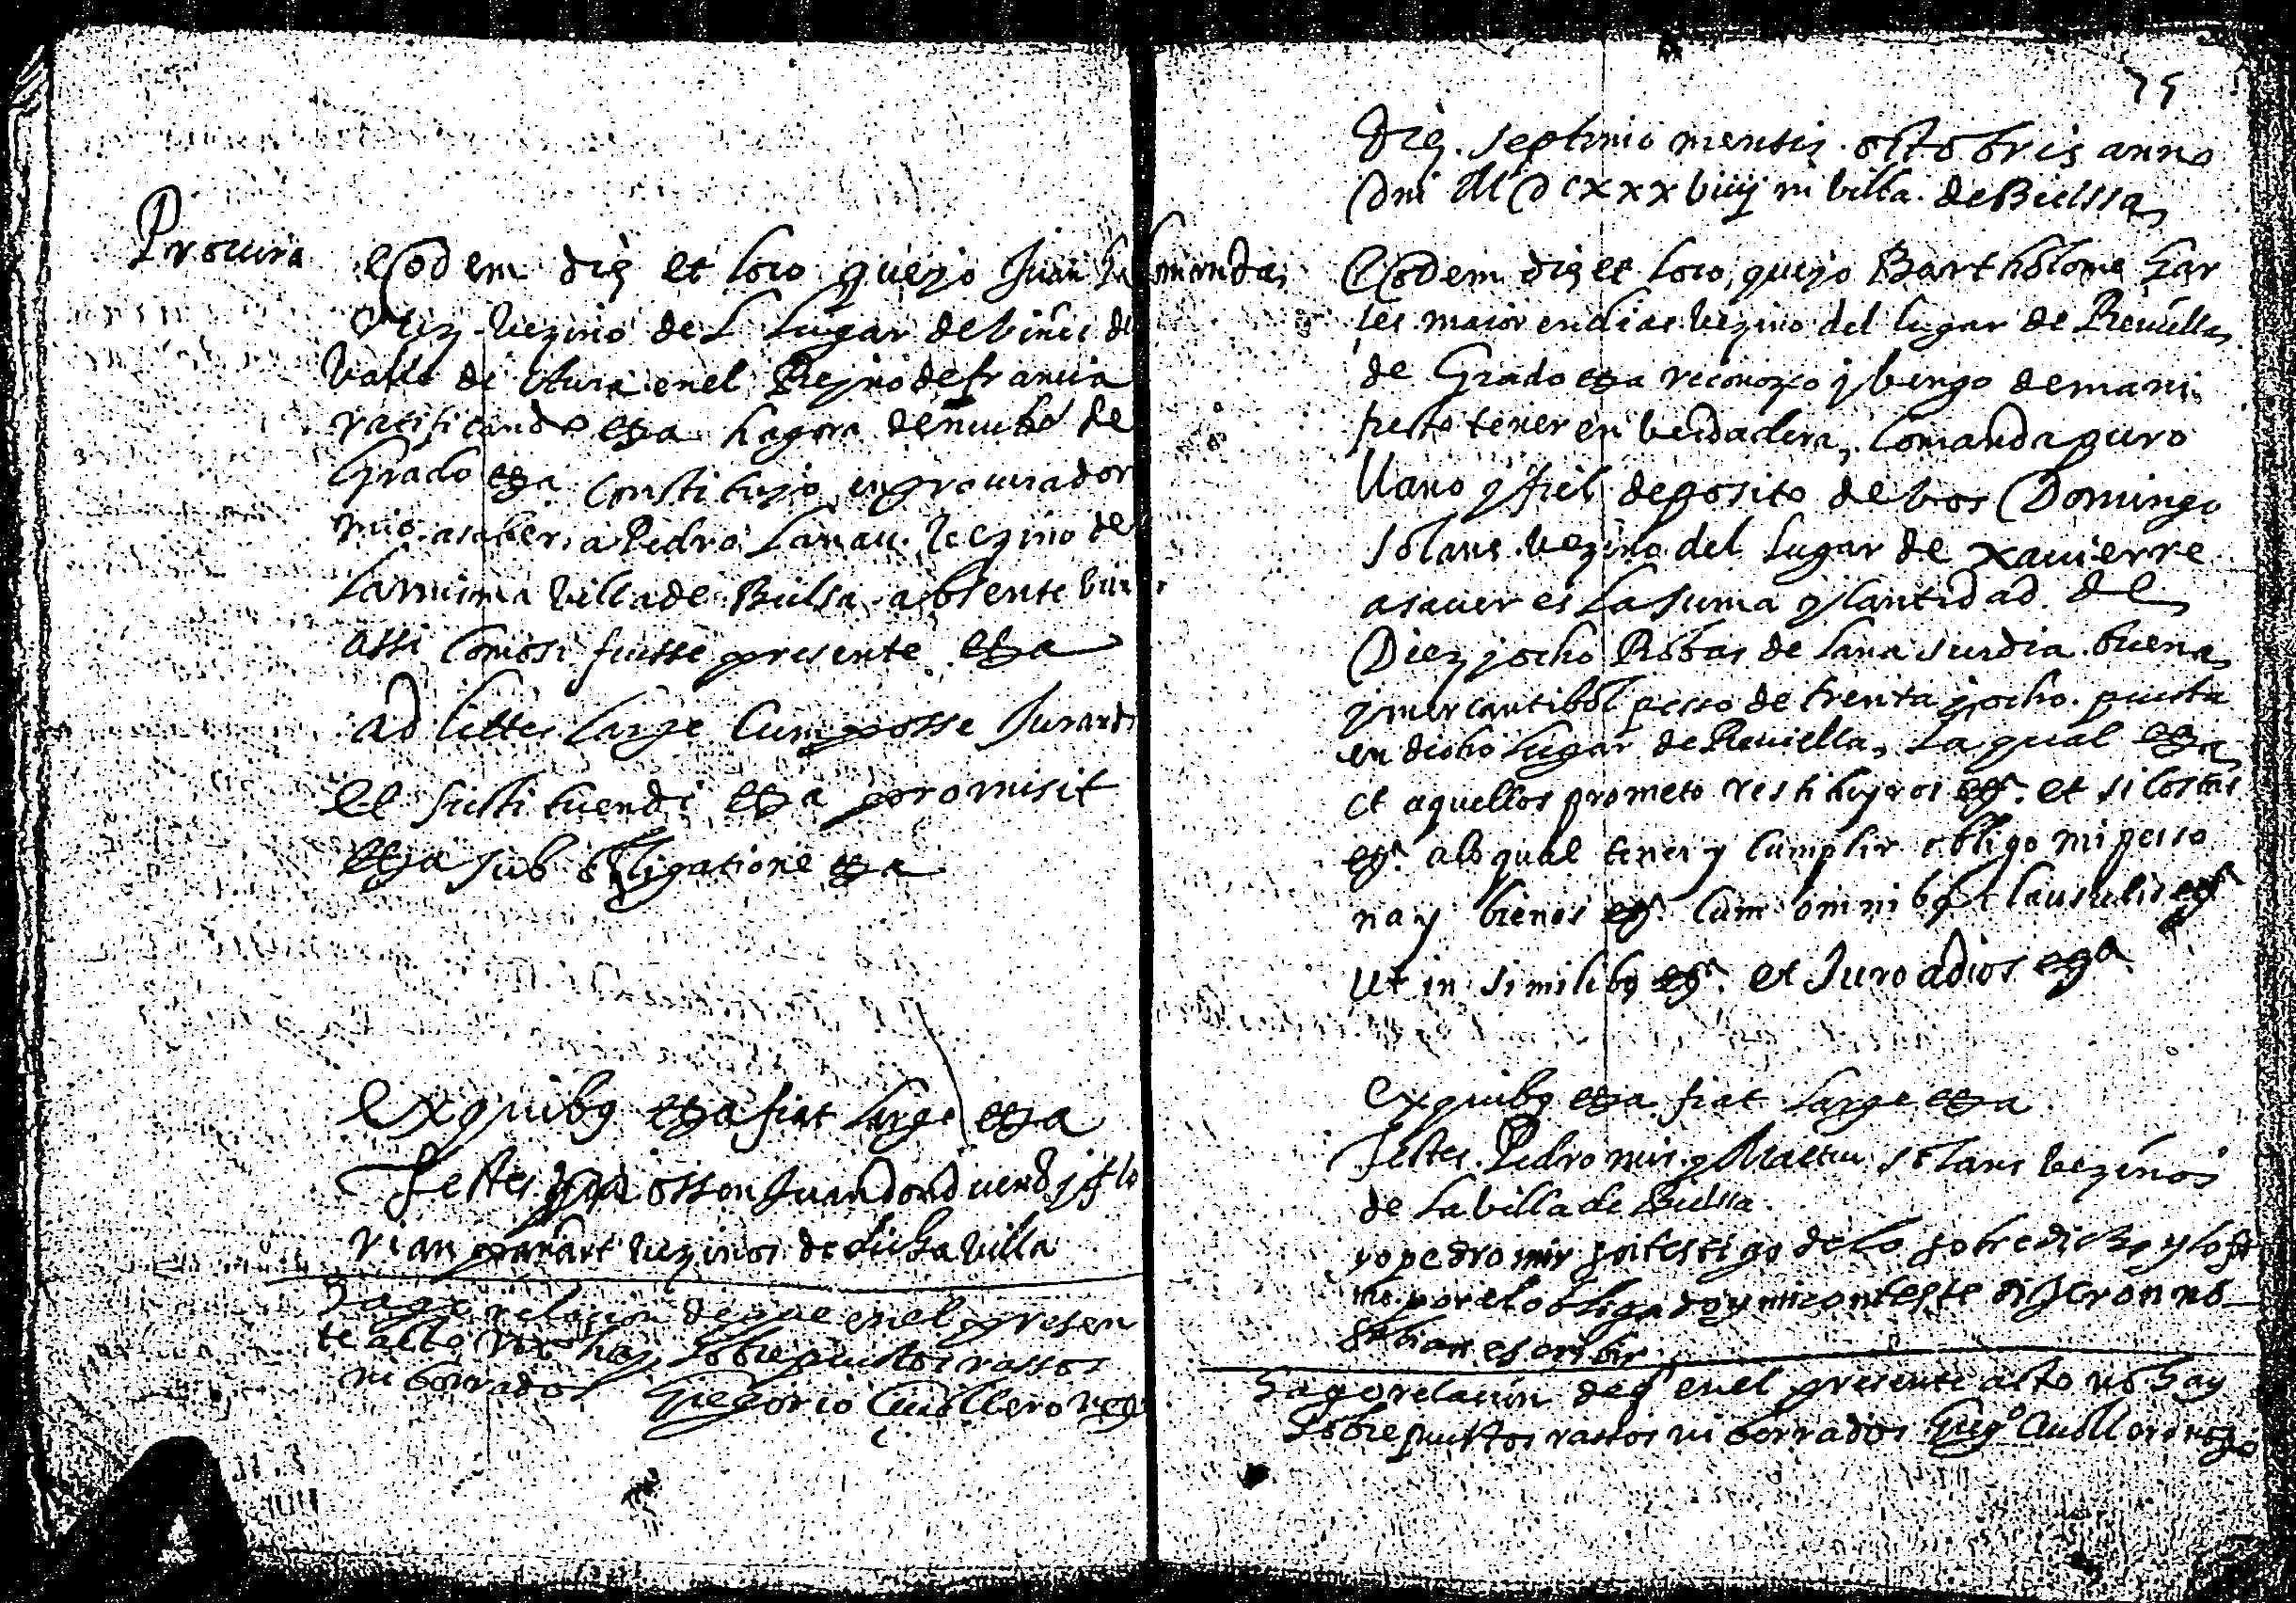 Procura
eodem die et loco queyo Juan
vezino del lugar de vines de
Valle de Aura en el Reyno de francia
ratificando etza hagora de nuebo de
Grado etza constituyo en procurador
mio asaber a Pedro Lanau vezino de
la misma villa de Bielsa absente bien
assi como si fuesse presente etza
ad littes large cum posse Jurandi
et sustituendi etza promisit
etza sub obligatione etza
ex quibg etza fiat large etza
Testes Juan dond
vezinos de dicha villa
hago relacion de que en el presen
te acto no hay sobrepuestos rassos
ni borrados Gregorio Cavallero
75
Die septimo mensis octobris anno
Dni MDCxxxbiiij in villa de Bielssa
Comanda
Eodem die et loco queyo Bartholome
maior en dias vezino del lugar de Reuilla
de Grado etza reconozco y bengo de mani
fiesto tener en berdadera Comanda puro
llano y fiel deposito de bos Domingo
Solans vezino del lugar de xauierre
asauer es la suma y cantidad de
Diez y ocho Robas de lana surdia buena
y mercantibol pesso de trenta y ocho puesta
en dicho lugar de Reuiella la qual etza
et aquellos prometo restituyros etza et si costas
etza a lo qual tener y cumplir obligo mi perso
na y bienes etza cum omnibg clausulis etza
ut in similibg etza et Juro a dios etza
exquibg etza fiat large etza
Testes Pedro mir y Mateu Solans vezinos
de la villa de Bielssa
yo pedro mir soi testigo de lo sobredicho y lo fir
mo por el obligado y mi conteste dijeron no
sabian escribir
hago relacion de q en el presente acto no hay
sobrepuestos rassos ni borrados Gregº